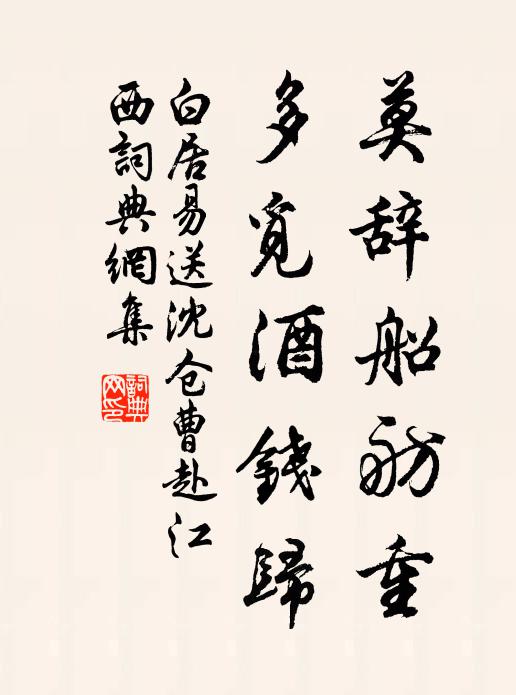 莫辞船舫重
多觅酒錢歸
白居易送沈仓曹赴江
西詞典網集
詞典
网印